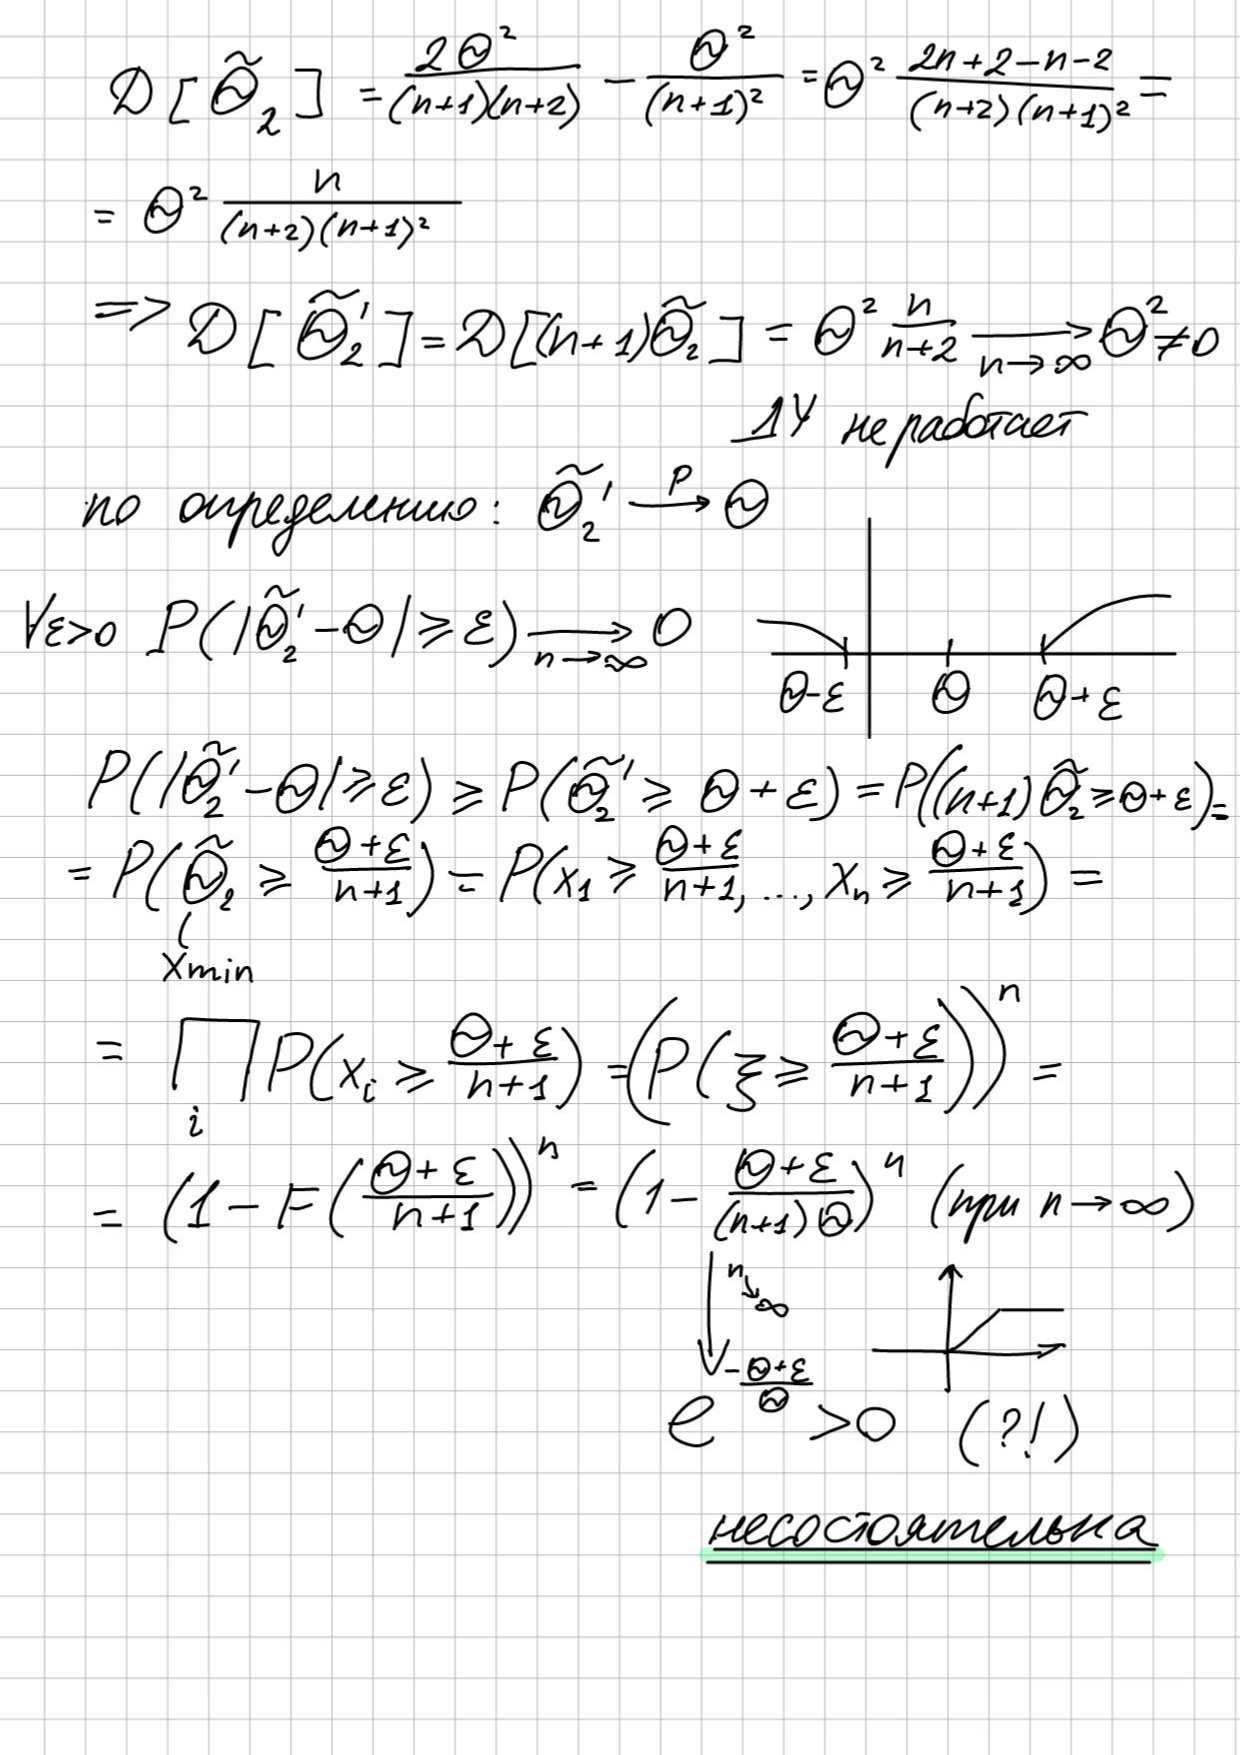 D[Θ̃₂] = 2Θ²/((n+1)(n+2)) − Θ²/(n+1)² = Θ² (2n+2−n−2)/((n+2)(n+1)²) =
= Θ² n/((n+2)(n+1)²)
=> D[Θ̃₂'] = D[(n+1)Θ̃₂] = Θ² n/(n+2) →_{n→∞} Θ² ≠ 0
ДУ не работает
по определению: Θ̃₂' →^P Θ
∀ε>0 P(|Θ̃₂' − Θ| ⩾ ε) →_{n→∞} 0
Θ-ε Θ Θ+ε
P(|Θ̃₂' − Θ| ⩾ ε) ⩾ P(Θ̃₂' ⩾ Θ + ε) = P((n+1)Θ̃₂ ⩾ Θ+ε) =
= P(Θ̃₂ ⩾ (Θ+ε)/(n+1)) = P(x₁ ⩾ (Θ+ε)/(n+1), ..., xₙ ⩾ (Θ+ε)/(n+1)) =
xmin
= ∏_i P(xᵢ ⩾ (Θ+ε)/(n+1)) = (P(ξ ⩾ (Θ+ε)/(n+1)))ⁿ =
= (1 − F((Θ+ε)/(n+1)))ⁿ = (1 − (Θ+ε)/((n+1)Θ))ⁿ (при n→∞)
n→∞
e^{−(Θ+ε)/Θ} > 0 (?!)
несостоятельна